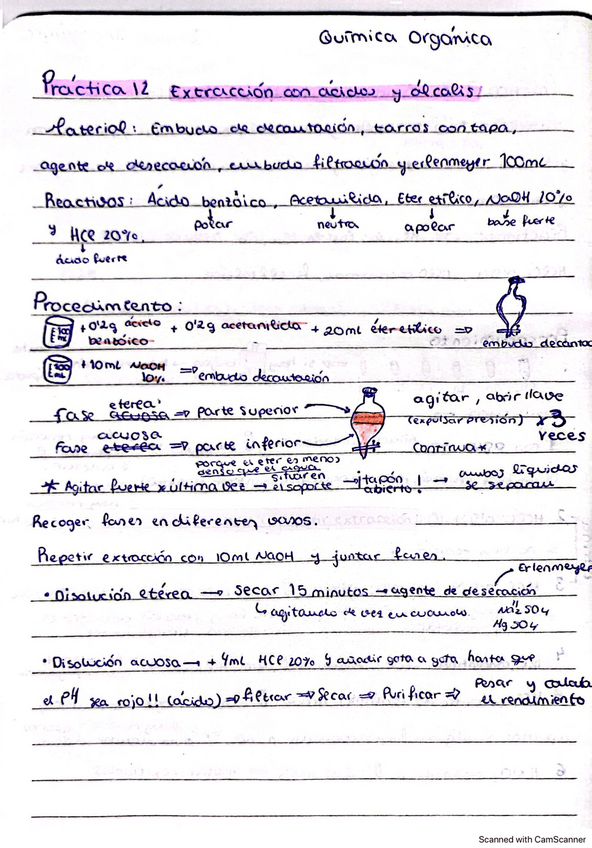 Química Orgánica
Práctica 12 Extracción con ácidos y álcalis
Material: Embudo de decantación, tarros con tapa,
agente de desecación, embudo filtración y erlenmeyer 100mL
Reactivos: Ácido benzóico, Acetanilida, Eter etílico, NaOH 10%
polar neutra apolar base fuerte
y HCl 20%.
ácido fuerte
Procedimiento:
100 mL + 0'2g ácido benzóico + 0'2g acetanilida + 20ml éter etílico ⇒
embudo decantac
100 mL + 10ml NaOH 10% ⇒ embudo decautación
fase acuosa eterea: ⇒ parte superior
agitar, abrir llave
(expulsar presión) x3 veces
fase eterea acuosa ⇒ parte inferior
continua*
porque el eter es menos denso que el agua
* Agitar fuerte x última vez → situar en el soporte → ¡tapón abierto! → ambos líquidos se separan
Recoger fases en diferentes vasos.
Repetir extracción con 10ml NaOH y juntar fases.
Erlenmeyer
• Disolución etérea → Secar 15 minutos → agente de deseración
↳ agitando de vez en cuando.
MgSO4
• Disolución acuosa → + 4ml HCl 20% y añadir gota a gota hasta que
el pH sea rojo!! (ácido) ⇒ filtrar ⇒ Secar ⇒ Purificar ⇒ Pesar y calcula el rendimiento
Scanned with CamScanner